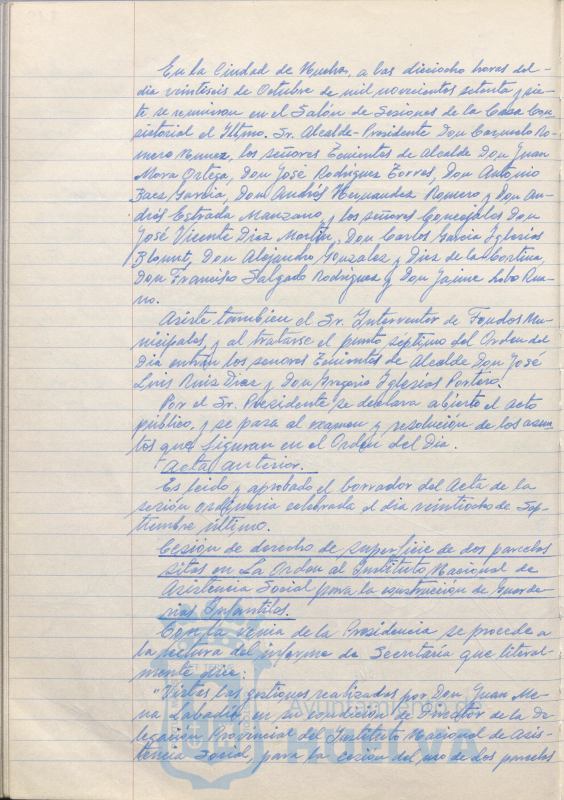 En la Ciudad de Huelva, a las dieciocho horas del
día veintiséis de Octubre de mil novecientos setenta y sie-
te se reunieron en el Salón de Sesiones de la Casa Con
sistorial el Iltmo. Sr. Alcalde-Presidente Don Carmelo Ro-
mero Nunez, los señores Tenientes de Alcalde Don Juan
Mora Ortega, Don José Rodríguez Torres, Don Antonio
Baez Garbia, Don Andrés Hernandez Romero y Don An-
drés Estrada Manzano, y los señores Concejales Don
José Vicente Diaz Martín, Don Carlos García Iglesias
Don Alejandro Gonzalez y Diez de la Cortina,
Don Francisco Salgado Rodríguez y Don Jaime Lobo Rua-
no.
Asiste tambien el Sr. Interventor de Fondos Mu-
nicipales, y al tratarse el punto septimo del Orden del
Día entran los senores Tenientes de Alcalde Don José
Luis Ruiz Diaz y Don Gregorio Iglesias Portero.
Por el Sr. Presidente se declara abierto el acto
público, y se pasa al examen y resolución de los asun
tos que figuran en el Orden del Día.
Acta anterior.
Es leido y aprobado el borrador del Acta de la
sesión ordinaria celebrada el dia veintiocho de Sep-
tiembre último.
Cesión de derecho de superficie de dos parcelas
sitas en La Orden al Instituto Nacional de
Asistencia Social para la construcción de Guarde
rias Infantiles.
Con la venia de la Presidencia se procede a
la lectura del informe de Secretaría que literal-
mente dice:
"Vistas las gestiones realizadas por Don Juan Me-
na Labadía en su condición de Director de la De
legación Provincial del Instituto Nacional de Asis-
tencia Social, para la cesión del uso de dos parcelas
Ayuntamiento de
HUELVA